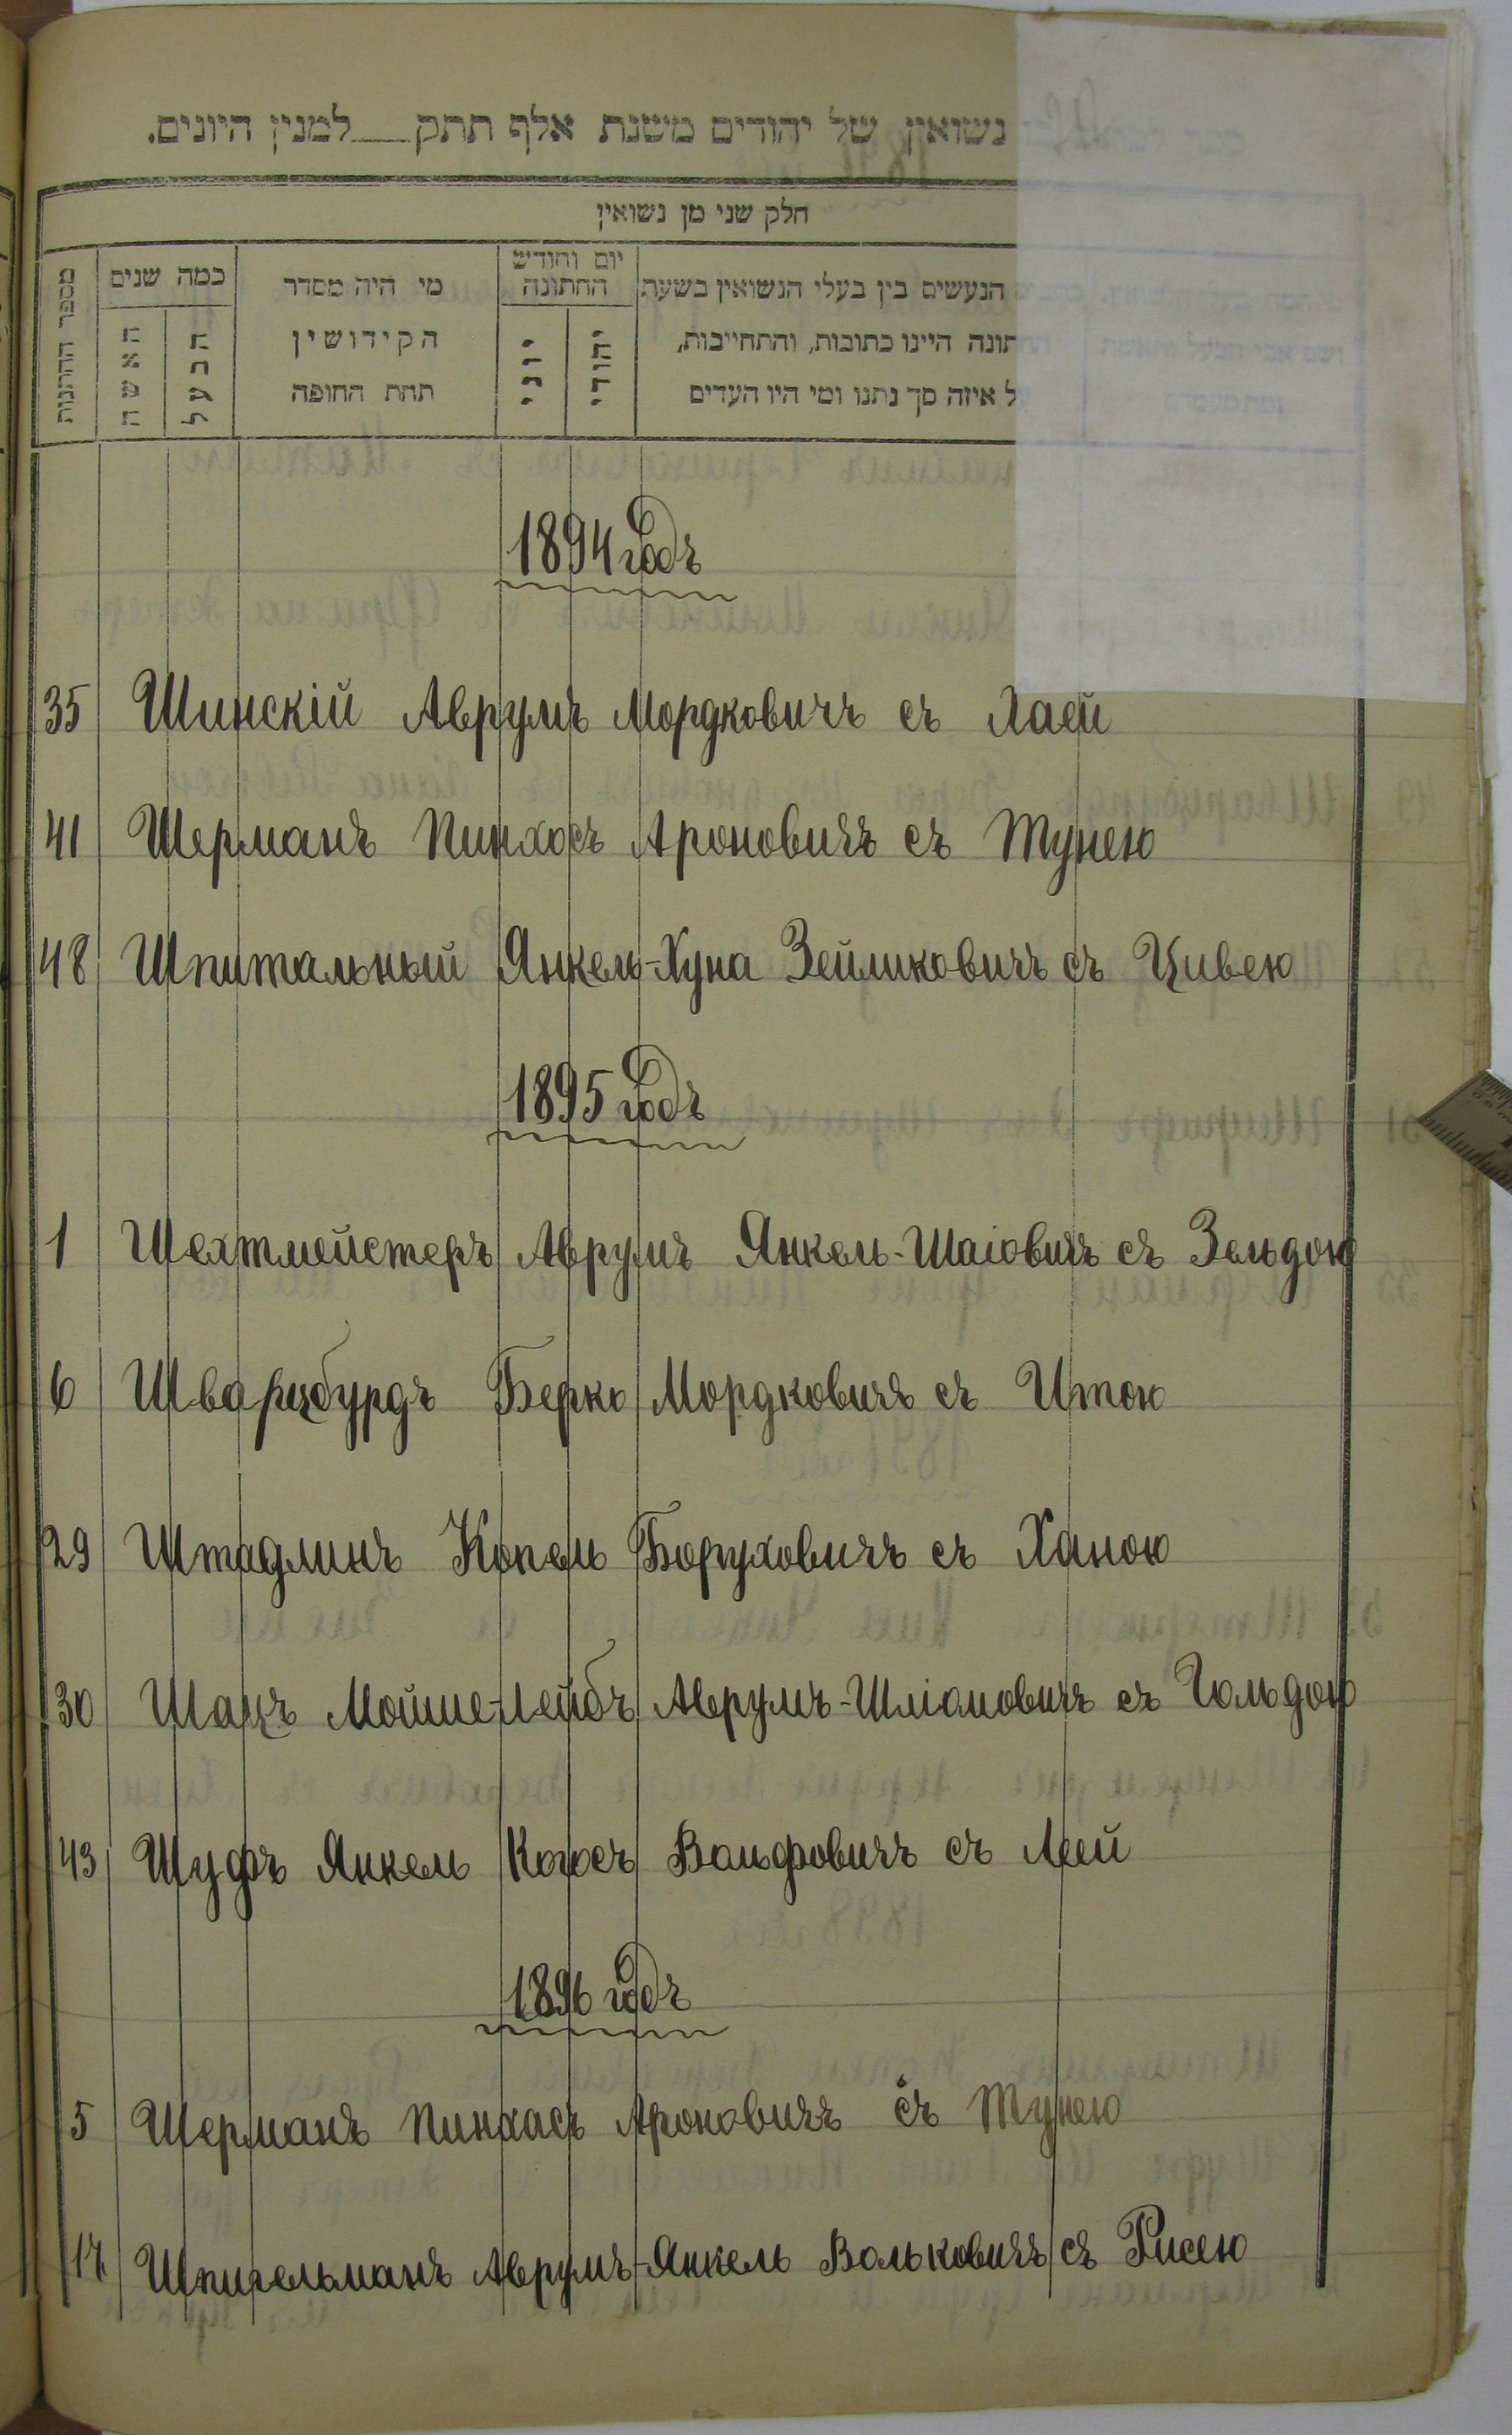 נשואין של יהודים משנת אלף תתק למנין היונים.
חלק שני מן נשואין
מספר החתונות
כמה שנים
האשה
הבעל
מי היה מסדר
הקידושין
תחת החופה
יום וחודש
החתונה
יוני
יהודי
הנעשים בין בעלי הנשואין בשעת
תונה היינו כתובות, והתחייבות,
ל איזה סך נתנו ומי היו העדים
1894 годъ
35 Шинскій Аврумъ Мордковичъ съ Хаей
41 Шерманъ Пинхосъ Ароновичъ съ Тунею
48 Шпитальный Янкель-Хуна Зейликовичъ съ Цивею
1895 годъ
1 Шехтмейстеръ Аврумъ Янкель-Шаіовичъ съ Зельдою
6 Шварцбурдъ Берко Мордковичъ съ Итою
29 Штадлинъ Копель Боруховичъ съ Ханою
30 Шацъ Мойше-Лейбъ Аврумъ-Шліомовичъ съ Гольдою
43 Шуфъ Янкель Когосъ Вольфовичъ съ Леей
1896 годъ
5 Шерманъ Пинхасъ Ароновичъ съ Тунею
Шпигельманъ Аврумъ-Янкель Вольковичъ съ Рисею